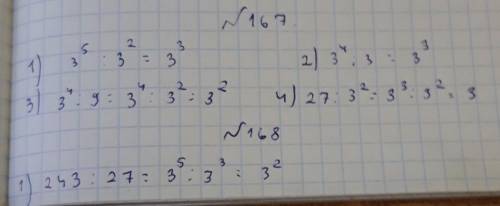 №167.
1) 3⁵ : 3² = 3³ 2) 3⁴ : 3 = 3³
3) 3⁴ : 9 = 3⁴ : 3² = 3² 4) 27 : 3² = 3³ : 3² = 3
№168
1) 243 : 27 = 3⁵ : 3³ = 3²